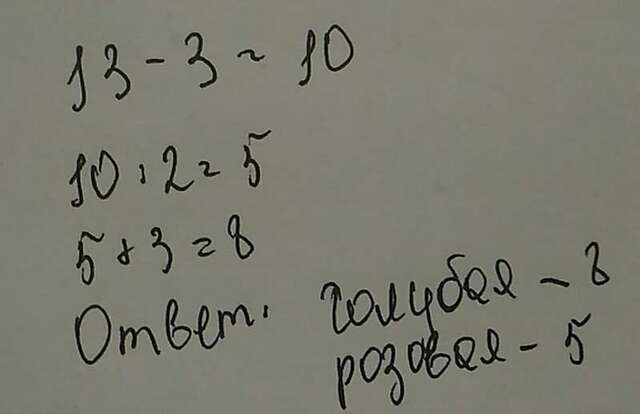 13 - 3 = 10
10 : 2 = 5
5 + 3 = 8
Ответ: голубая - 8
розовая - 5